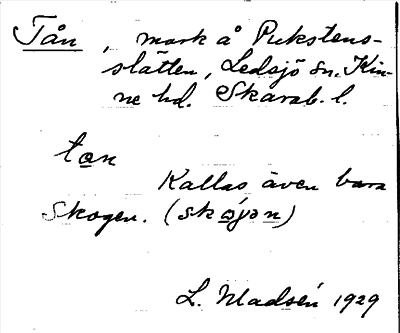 Tån, mark å Pukstens-
slätten, Ledsjö sn. Kin-
ne hd. Skarab. l.
tan
Kallas även bara
Skogen. (skøjən)
L. Madsén 1929